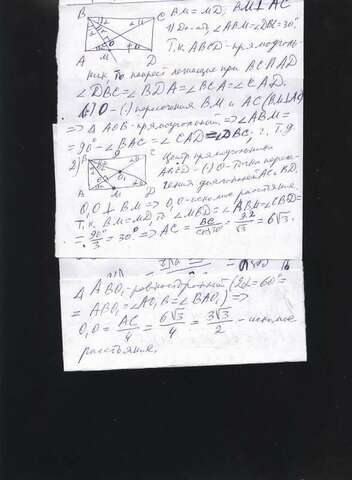 BM = MD; BM ⊥ AC
1) Док-ать ∠ABM = ∠DBC = 30°
Т.к. ABCD - прямоуголь-
ник, то накрест лежащие при BC ∥ AD
∠DBC = ∠BDA = ∠BCA = ∠CAD.
O - (·) пересечения BM и AC (BM⊥AC)
=> Δ AOB - прямоугольный => ∠ABM =
= 90° - ∠BAC = ∠CAD = ∠DBC ч. т.д
2) Центр прямоугольника
ABCD - (·) O₁ - точка пересе-
чения диагоналей AC и BD.
O₁O ⊥ BM => O₁O - искомое расстояние.
Т.к. BM = MD, то ∠MBD = ∠ABM = ∠CBD =
= 90°/3 = 30° => AC = BC/cos30° = 9·2/√3 = 6√3.
Δ ABO₁ - равносторонний (2α = 60° =
= ∠ABO₁ = ∠AO₁B = ∠BAO₁) =>
O₁O = AC/4 = 6√3/4 = 3√3/2 - искомое
расстояние.